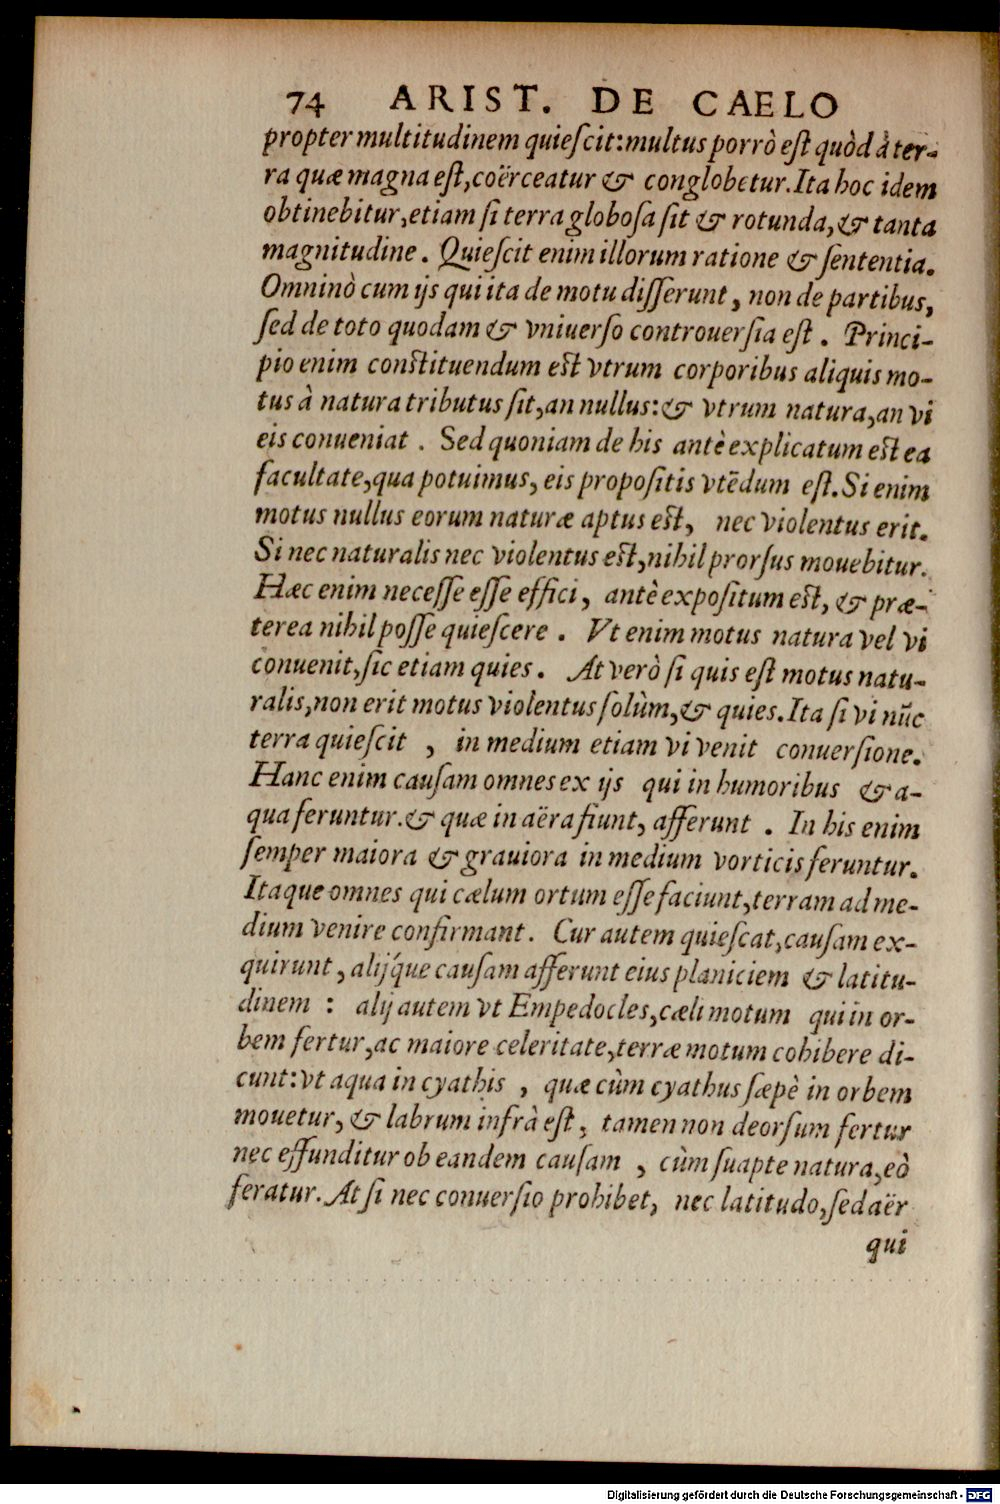 74 ARIST. DE CAELO
propter multitudinem quieſcit: multus porrò eſt quòd à ter-
ra quæ magna eſt, coërceatur & conglobetur. Ita hoc idem
obtinebitur, etiam ſi terra globoſa ſit & rotunda, & tanta
magnitudine. Quieſcit enim illorum ratione & ſententia.
Omninò cum ijs qui ita de motu diſſerunt, non de partibus,
ſed de toto quodam & vniuerſo controuerſia eſt. Princi-
pio enim conſtituendum eſt vtrum corporibus aliquis mo-
tus à natura tributus ſit, an nullus: & vtrum natura, an vi
eis conueniat. Sed quoniam de his antè explicatum eſt ea
facultate, qua potuimus, eis propoſitis vtēdum eſt. Si enim
motus nullus eorum naturæ aptus eſt, nec violentus erit.
Si nec naturalis nec violentus eſt, nihil prorſus mouebitur.
Hæc enim neceſſe eſſe effici, antè expoſitum eſt, & præ-
terea nihil poſſe quieſcere. Vt enim motus natura vel vi
conuenit, ſic etiam quies. At verò ſi quis eſt motus natu-
ralis, non erit motus violentus ſolùm, & quies. Ita ſi vi nūc
terra quieſcit, in medium etiam vi venit conuerſione.
Hanc enim cauſam omnes ex ijs qui in humoribus & a-
qua feruntur. & quæ in aëra fiunt, afferunt. In his enim
ſemper maiora & grauiora in medium vorticis feruntur.
Itaque omnes qui cælum ortum eſſe faciunt, terram ad me-
dium venire confirmant. Cur autem quieſcat, cauſam ex-
quirunt, alijq́ue cauſam afferunt eius planiciem & latitu-
dinem: alij autem vt Empedocles, cæli motum qui in or-
bem fertur, ac maiore celeritate, terræ motum cohibere di-
cunt: vt aqua in cyathis, quæ cùm cyathus ſæpè in orbem
mouetur, & labrum infrà eſt, tamen non deorſum fertur
nec effunditur ob eandem cauſam, cùm ſuapte natura, eò
feratur. At ſi nec conuerſio prohibet, nec latitudo, ſed aër
qui
Digitalisierung gefördert durch die Deutsche Forschungsgemeinschaft - DFG